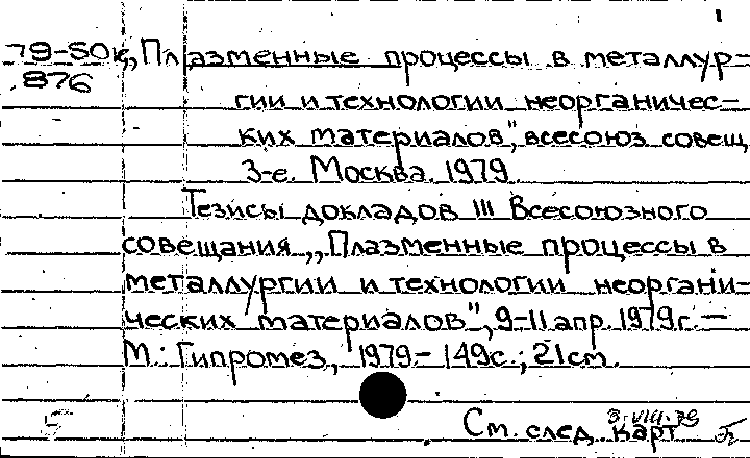 1
79-50к „Плазменные процессы в металлур-
876
гии и технологии неорганичес-
ких материалов", всесоюз. совещ.
3-е. Москва. 1979.
Тезисы докладов III Всесоюзного
совещания „Плазменные процессы в
металлургии и технологии неоргани-
ческих материалов", 9-11 апр. 1979г. —
М.: Гипромез, 1979.- 149с.; 21см.
3.VIII.79
См. след. карт